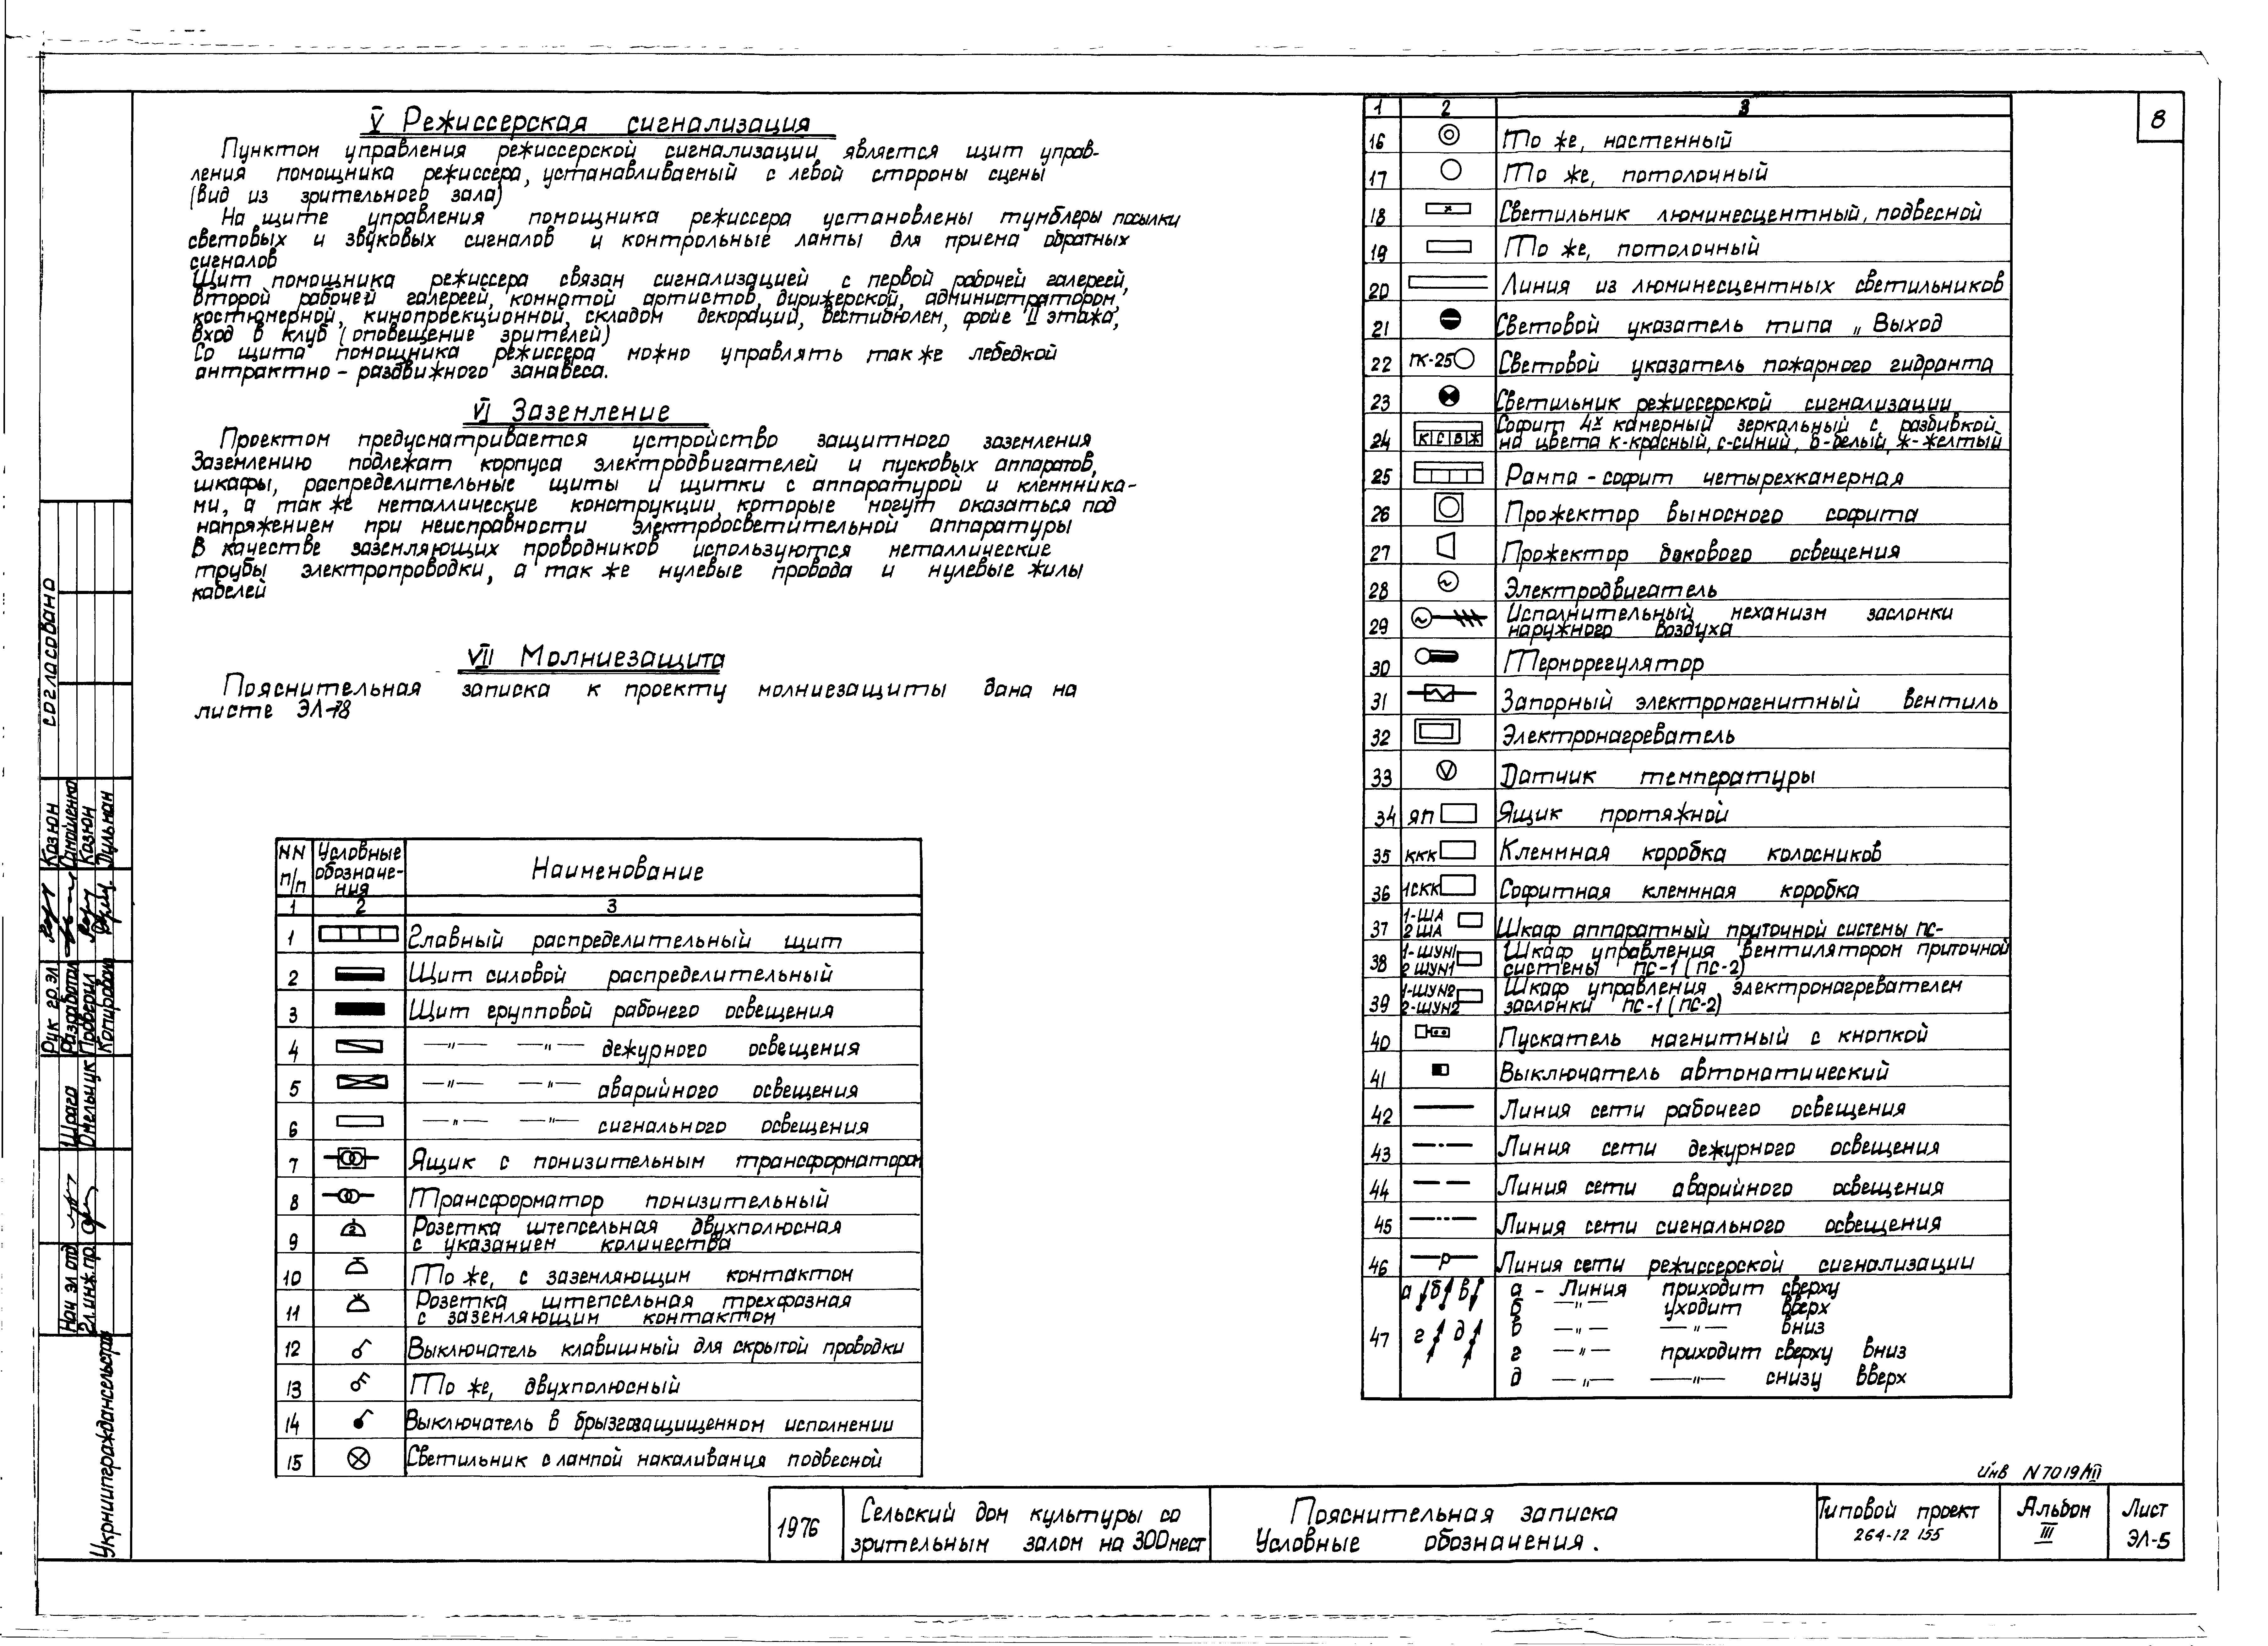 8
V Режиссерская сигнализация
Пунктом управления режиссерской сигнализации является щит управ-
ления помощника режиссера, устанавливаемый с левой стороны сцены
(вид из зрительного зала)
На щите управления помощника режиссера установлены тумблеры посылки
световых и звуковых сигналов и контрольные лампы для приема обратных
сигналов
Щит помощника режиссера связан сигнализацией с первой рабочей галереей,
второй рабочей галереей, комнатой артистов, дирижерской, администратором,
костюмерной, кинопроекционной, складом декораций, вестибюлем, фойе II этажа,
вход в клуб (оповещение зрителей)
Со щита помощника режиссера можно управлять так же лебедкой
антрактно - раздвижного занавеса.
VI Заземление
Проектом предусматривается устройство защитного заземления
Заземлению подлежат корпуса электродвигателей и пусковых аппаратов,
шкафы, распределительные щиты и щитки с аппаратурой и клеммника-
ми, а так же металлические конструкции, которые могут оказаться под
напряжением при неисправности электроосветительной аппаратуры
В качестве заземляющих проводников используются металлические
трубы электропроводки, а так же нулевые провода и нулевые жилы
кабелей
VII Молниезащита
Пояснительная записка к проекту молниезащиты дана на
листе ЭЛ-78
NN п/п Условные обозначе-ния Наименование
1 2 3
1 Главный распределительный щит
2 Щит силовой распределительный
3 Щит групповой рабочего освещения
4 —"— —"— дежурного освещения
5 —"— —"— аварийного освещения
6 —"— —"— сигнального освещения
7 Ящик с понизительным трансформатором
8 Трансформатор понизительный
9 2 Розетка штепсельная двухполюсная
с указанием количества
10 То же, с заземляющим контактом
11 Розетка штепсельная трехфазная
с заземляющим контактом
12 Выключатель клавишный для скрытой проводки
13 То же, двухполюсный
14 Выключатель в брызгозащищенном исполнении
15 Светильник с лампой накаливания подвесной
1 2 3
16 То же, настенный
17 То же, потолочный
18 Светильник люминесцентный, подвесной
19 То же, потолочный
20 Линия из люминесцентных светильников
21 Световой указатель типа „Выход
22 ПК-25 Световой указатель пожарного гидранта
23 Светильник режиссерской сигнализации
24 К С В Ж Софит 4х камерный зеркальный с разбивкой
на цвета к-красный, с-синий, б-белый, ж-желтый
25 Рампа - софит четырехкамерная
26 Прожектор выносного софита
27 Прожектор бокового освещения
28 Электродвигатель
29 Исполнительный механизм заслонки
наружного воздуха
30 Терморегулятор
31 Запорный электромагнитный вентиль
32 Электронагреватель
33 Датчик температуры
34 ЯП Ящик протяжной
35 ККК Клеммная коробка колосников
36 1СКК Софитная клеммная коробка
37 1-ША 2 ША Шкаф аппаратный приточной системы ПС-
38 1-ШУН1 2 ШУН1 Шкаф управления вентилятором приточной
системы ПС-1 (ПС-2)
39 1-ШУН2 2-ШУН2 Шкаф управления электронагревателем
заслонки ПС-1 (ПС-2)
40 Пускатель магнитный с кнопкой
41 Выключатель автоматический
42 Линия сети рабочего освещения
43 Линия сети дежурного освещения
44 Линия сети аварийного освещения
45 Линия сети сигнального освещения
46 Линия сети режиссерской сигнализации
47 а б в а - Линия приходит сверху
б —"— уходит вверх
в —"— —"— вниз
г д г —"— приходит сверху вниз
д —"— —"— снизу вверх
Инв N 7019/III
1976
Сельский дом культуры со
зрительным залом на 300 мест
Пояснительная записка
Условные обозначения.
Типовой проект
264-12 155
Альбом
III
Лист
ЭЛ-5
согласовано
Рук гр эл Казюн
Разработал
Проверил Казюн
Копировала Дульман
Нач эл отд Шраго
Гл. инж. пр. Омельчук
Укрниипграждансельстрой